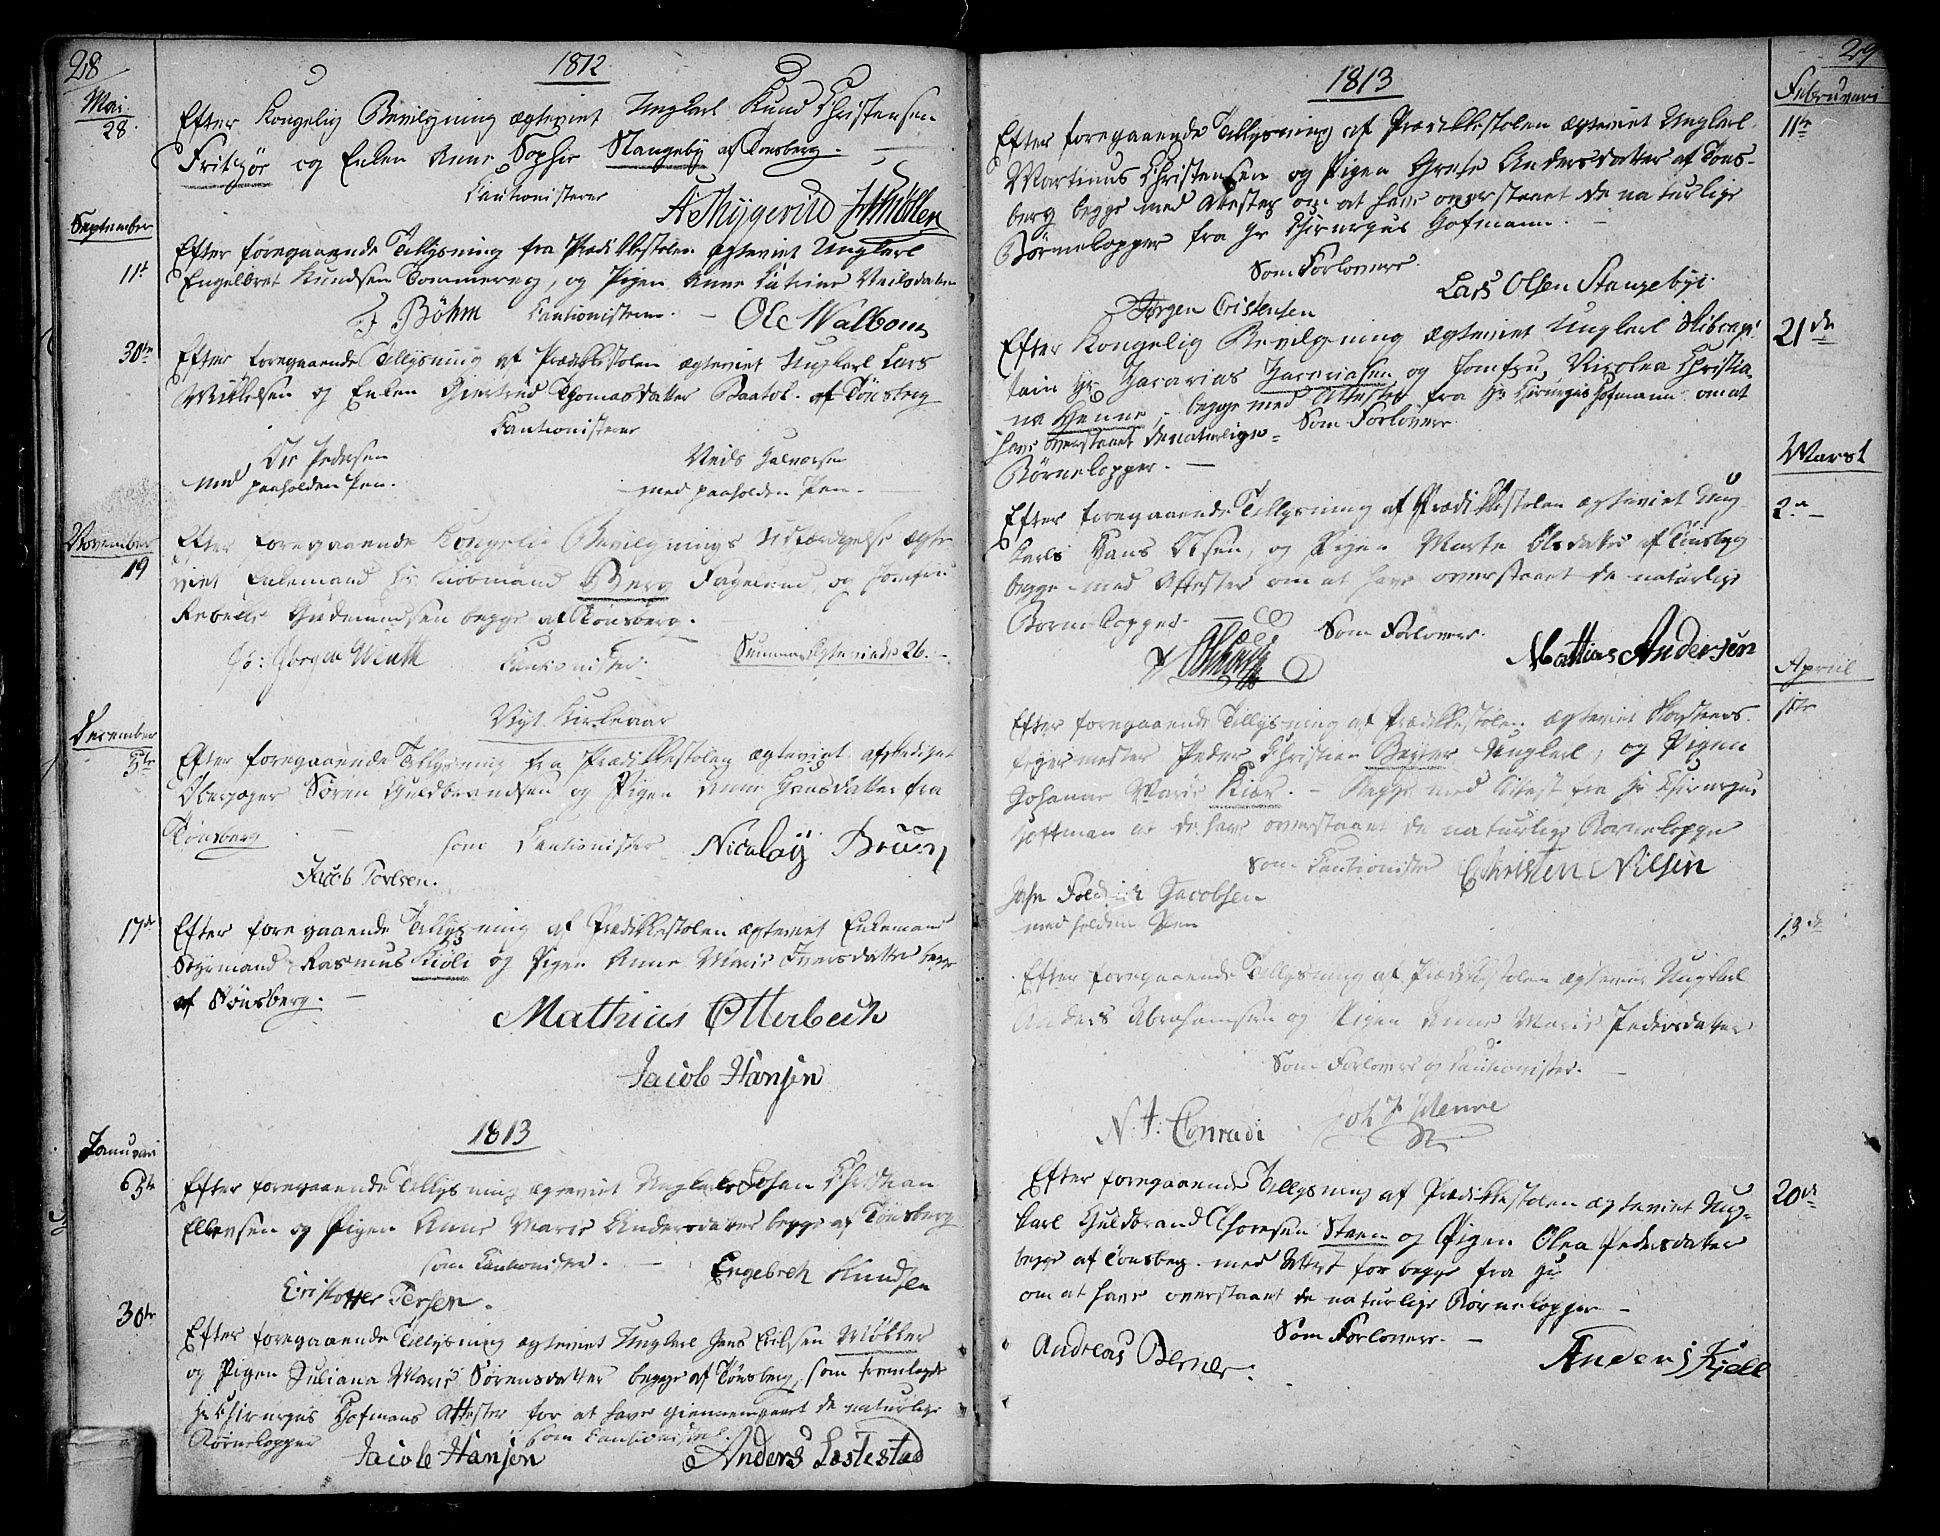 28
1812
Mai
28.
Efter Kongelig Bevilgning ægteviet Ungkarl Knud Christensen
Fritzöe og Enken Anne Sophie Slangeby af Tønsberg.
Cautionisterer
September
11te
Efter foregaaende Tillysning fra Prædikkestolen ægteviet Ungkarl
Engelbret Knudsen og Pigen Anne Catrine Neilsdatter
F Böhm Cautionisterer. - Ole Walbom
30te
Efter foregaaende Tillysning af Prædikkestolen ægteviet Ungkarl Lars
Mikkelsen og Enken Giertrud Thomasdatter af Tönsberg
Cautionisterer
Ole Pedersen
med paaholden Pen.
Neils Halvorsen
med paaholden Pen.
November
19
Efter foregaaende Kongelig Bevilgnings Udfærdigelse ægte
viet Enkemand Hr Kiöbmand Berg Fagelund, og Jomfru
Gudmundsen begge af Tönsberg.
Jörgen Winth Cautionister. Summa Ægteviede 26.
Nyt Kirkeaar
December
3die
Efter foregaaende Tillysning fra Prædikkestolen ægteviet afskediget
Oberjæger Sören Guldbrandsen og Pigen Anne Hansdatter fra
Tönsberg
som Cautionister Nicolay Bruun
Jacob Torlsen.
17de
Efter foregaaende Tillysning af Prædikkestolen ægteviet Enkemand
Styrmand Rasmus Kiöli og Pigen Anne Marie Iversdatter begge
af Tönsberg.
Mathias Otterbech
Jacob Hansen
1813
Januari
6te
Efter foregaaende Tillysning ægteviet Ungkarl Johan Christian
Ellevsen og Pigen Anne Marie Andersdatter begge af Tönsberg
som Cautionister.
Cristoffer Tersen. Engebreth Knudsen
30te
Efter foregaaende Tillysning ægteviet Ungkarl Jens Möller
og Pigen Juliana Marie Sörensdatter begge af Tönsberg, som fremlagde
Hr Chirurgus Hofmans Attester for at have giennemgaaet de naturlige
Börnekopper
som Cautionister.
Jacob Hansen Anders Lostestad
29
1813
Februari
11te
Efter foregaaende Tillysning af Prædikkestolen ægteviet Ungkarl
Martinus Christensen og Pigen Grete Andersdatter af Töns-
berg begge med Attester om at have overstaaet de naturlige
Börnekopper fra Hr Chirurgus Hofmann. -
Som Forlovere.
Jörgen Cristensen Lars Olsen Stangebyi.
21de
Efter Kongelig Bevilgning ægteviet Ungkarl Skibcapi-
tain Hr. Zacarias Zacariasen og Jomfru Nicolea Christia-
na Henne, begge med Attester fra Hr Cirurgus Hofmann om at
have overstaaet de naturlige
Som Forlovere
Börnekopper. -
Marst
2.
Efter foregaaende Tillysning af Prædikkestolen ægteviet Ung-
karl Hans Olsen, og Pigen Marte Olsdatter af Tönsberg
begge med Attester om at have overstaaet de naturlige
Börnekopper.
Som Forlovere.
Mathias Andersen
Apriil
1te
Efter foregaaende Tillysning af Prædikkestolen ægteviet Skorsteens-
feyermester Peder Christian Beyer Ungkarl, og Pigen
Johanne Marie Kiær. - Begge med Attest fra Hr Chirurgus
Hoffman at de have overstaaet de naturlige Börnekopper
Som Cautionister Christen Nilsen
Jacobsen
med holden Pen
13de
Efter foregaaende Tillysning af Prædikkestolen ægteviet Ungkarl
Anders Abrahamsen og Pigen Anne Marie Pedersdatter
Som Forlovere og Cautionister.
N. J. Conradi Joh F Henne
20de
Efter foregaaende Tillysning af Prædikkestolen ægteviet Ung-
karl Guldbrand Thoresen Steen og Pigen Olea Pedersdatter
begge af Tönsberg. med Attest for begge fra Hr
om at have overstaaet de naturlige Börnekopper -
Som Forlovere. -
Andreas Berner. Anders Kjell